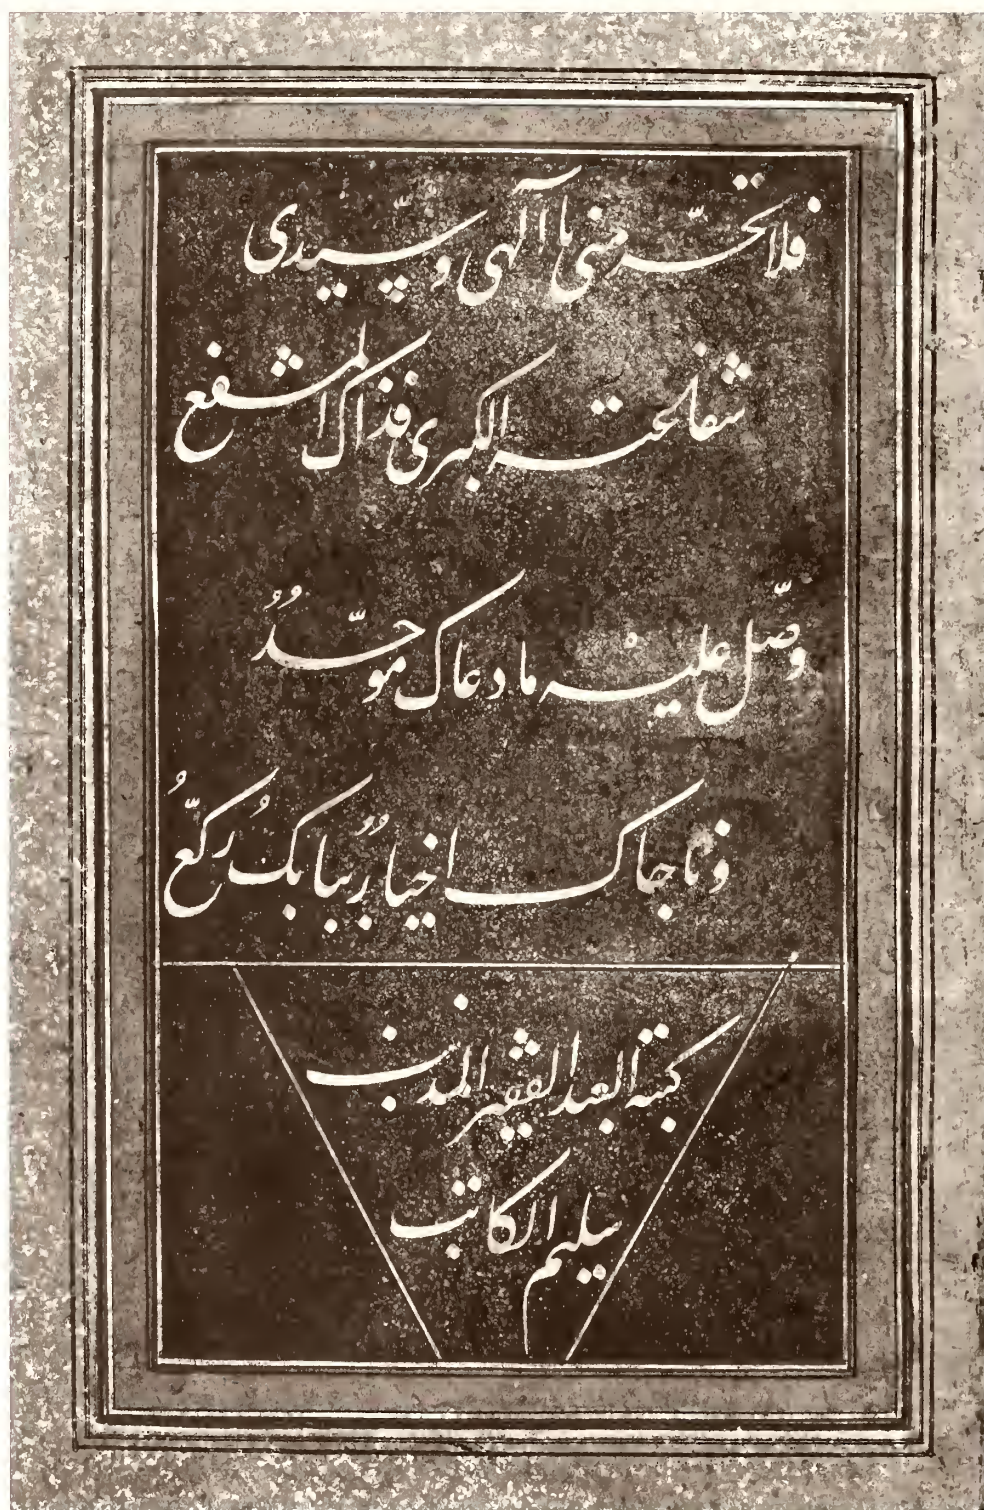 فلا تحرمنّي يا آلهي وسيّدي
شفاعته الكبرى فذاك المشفع
وصلّ عليه ما دعاك موحّدُ
وناجاك اخيارُ ببابكُ ركّعُ
كتبه العبد الفقير المذنب
سليم الكاتب